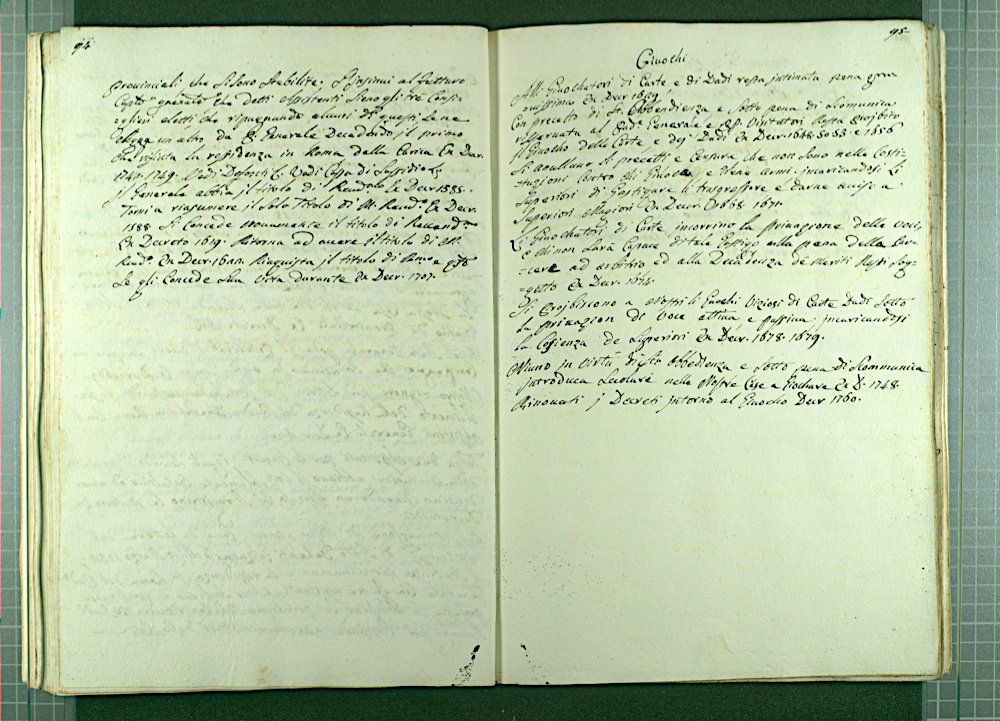 94
provinciali che si sono stabilite. S'insinui al futturo
Capit.º generale che detti Assistenti sieno gli trè Consi-
glieri eletti che ripugnando alcuni di questi se ne
elegga un altro da P. Generale Decadendo il primo
che rifiuta la residenza in Roma della Curia Ex Decr.
1747. 1749. Vadi Defonti E. Vadi Casa di Sussidio
il Generale abbia il titolo di Rend.mo Ex Decr 1585.
Torni a riassumere il solo Titolo di M. Rend.º Ex Decr.
1588 Si Concede nuovamente il titolo di
Ex Decreto 1619. Ritorna ad avere il titolo di M.
Rend.º Ex Decr. Riaquista il titolo di e questo
Se gli Concede sua vita durante Ex Decr. 1707.
95
Giuochi
Alli Giuochatori di Carte, e di Dadi resta intimata pena gra-
vissima Ex Decr. 1609
Con precetto di St. Obbendienza e sotto pena di Scomunica
riservata al Pad. Generale e PP. Visitatori Resta Proibito
il Giuocho delle Carte e degi Dadi Ex Decr. 1648. 50. 53. e 1656
Si anullano li precetti e Censure che non sono nelle Costi-
tuzioni Contro chi Giuoca, e tiene armi. incaricandosi Li
Superiori di Gastigare li trasgressori e darne aviso a
Superiori Magiori Ex Decr. 1668. 1671.
Li Giuochatori di Carte incorrino la privazione delle voci,
e chi non sarà Capace di tale Castigo alla pena della Car-
-cere ad arbitrio ed alla Decadenza de meriti Resti Sog-
-getto Ex Decr. 1674.
Si Proibiscono a Nostri li Giuochi Viziosi di Carte Dadi Sotto
la privazion di Voce attiva, e passiva incaricandosi
la Cosienza de Superiori Ex Decr. 1678. 1679.
Niuno in virtù di Sto Obbedienza e sotto pena di Scommunica
introduca Secolari nelle Nostre Case a Giochare Ex D. 1748
Rinovati i Decreti intorno al Giuocho Decr 1760.